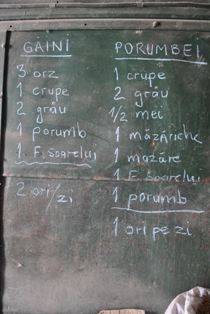 GĂINI
3 orz
1 crupe
2 grâu
1 porumb
1 F. Soarelui
2 ori/zi
PORUMBEI
1 crupe
2 grâu
1/2 mei
1 măzăriche
1 mazăre
1 F. Soarelui
1 porumb
1 ori pe zi